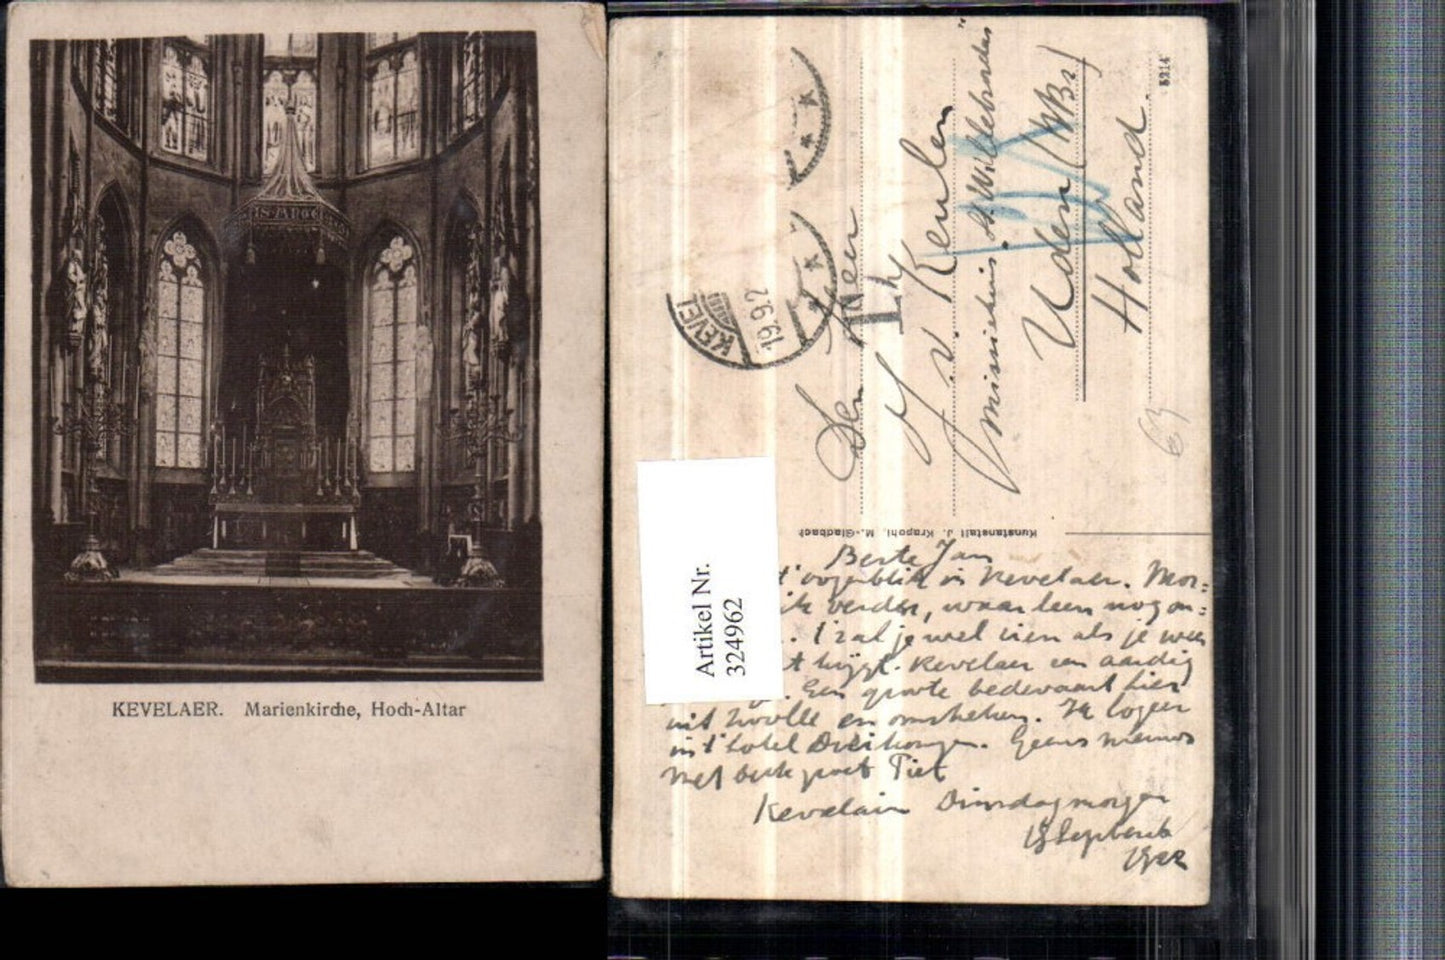 KEVELAER. Marienkirche, Hoch-Altar
IS. APOC
KEVEL
19.9.2
Den Heer
J. v. Keulen
Missiehuis "St. Willebrordus"
Uden (NBr)
Holland.
63
5214
Kunstanstalt J. Krapohl, M.-Gladbach
Artikel Nr.
324962
Beste Jan
t' oogenblik in Kevelaer. Mor=
ik verder, waarheen nog on=
. 't zal je wel zien als je weer
t krijgt. Kevelaer een aardig
. Een groote bedevaart hier
uit Zwolle en omstreken. Ik logeer
in 't hotel Dreikongen. Geens nieuws
Met beste groet Piet
Kevelaer Dinsdagmorgen
19 September
1922